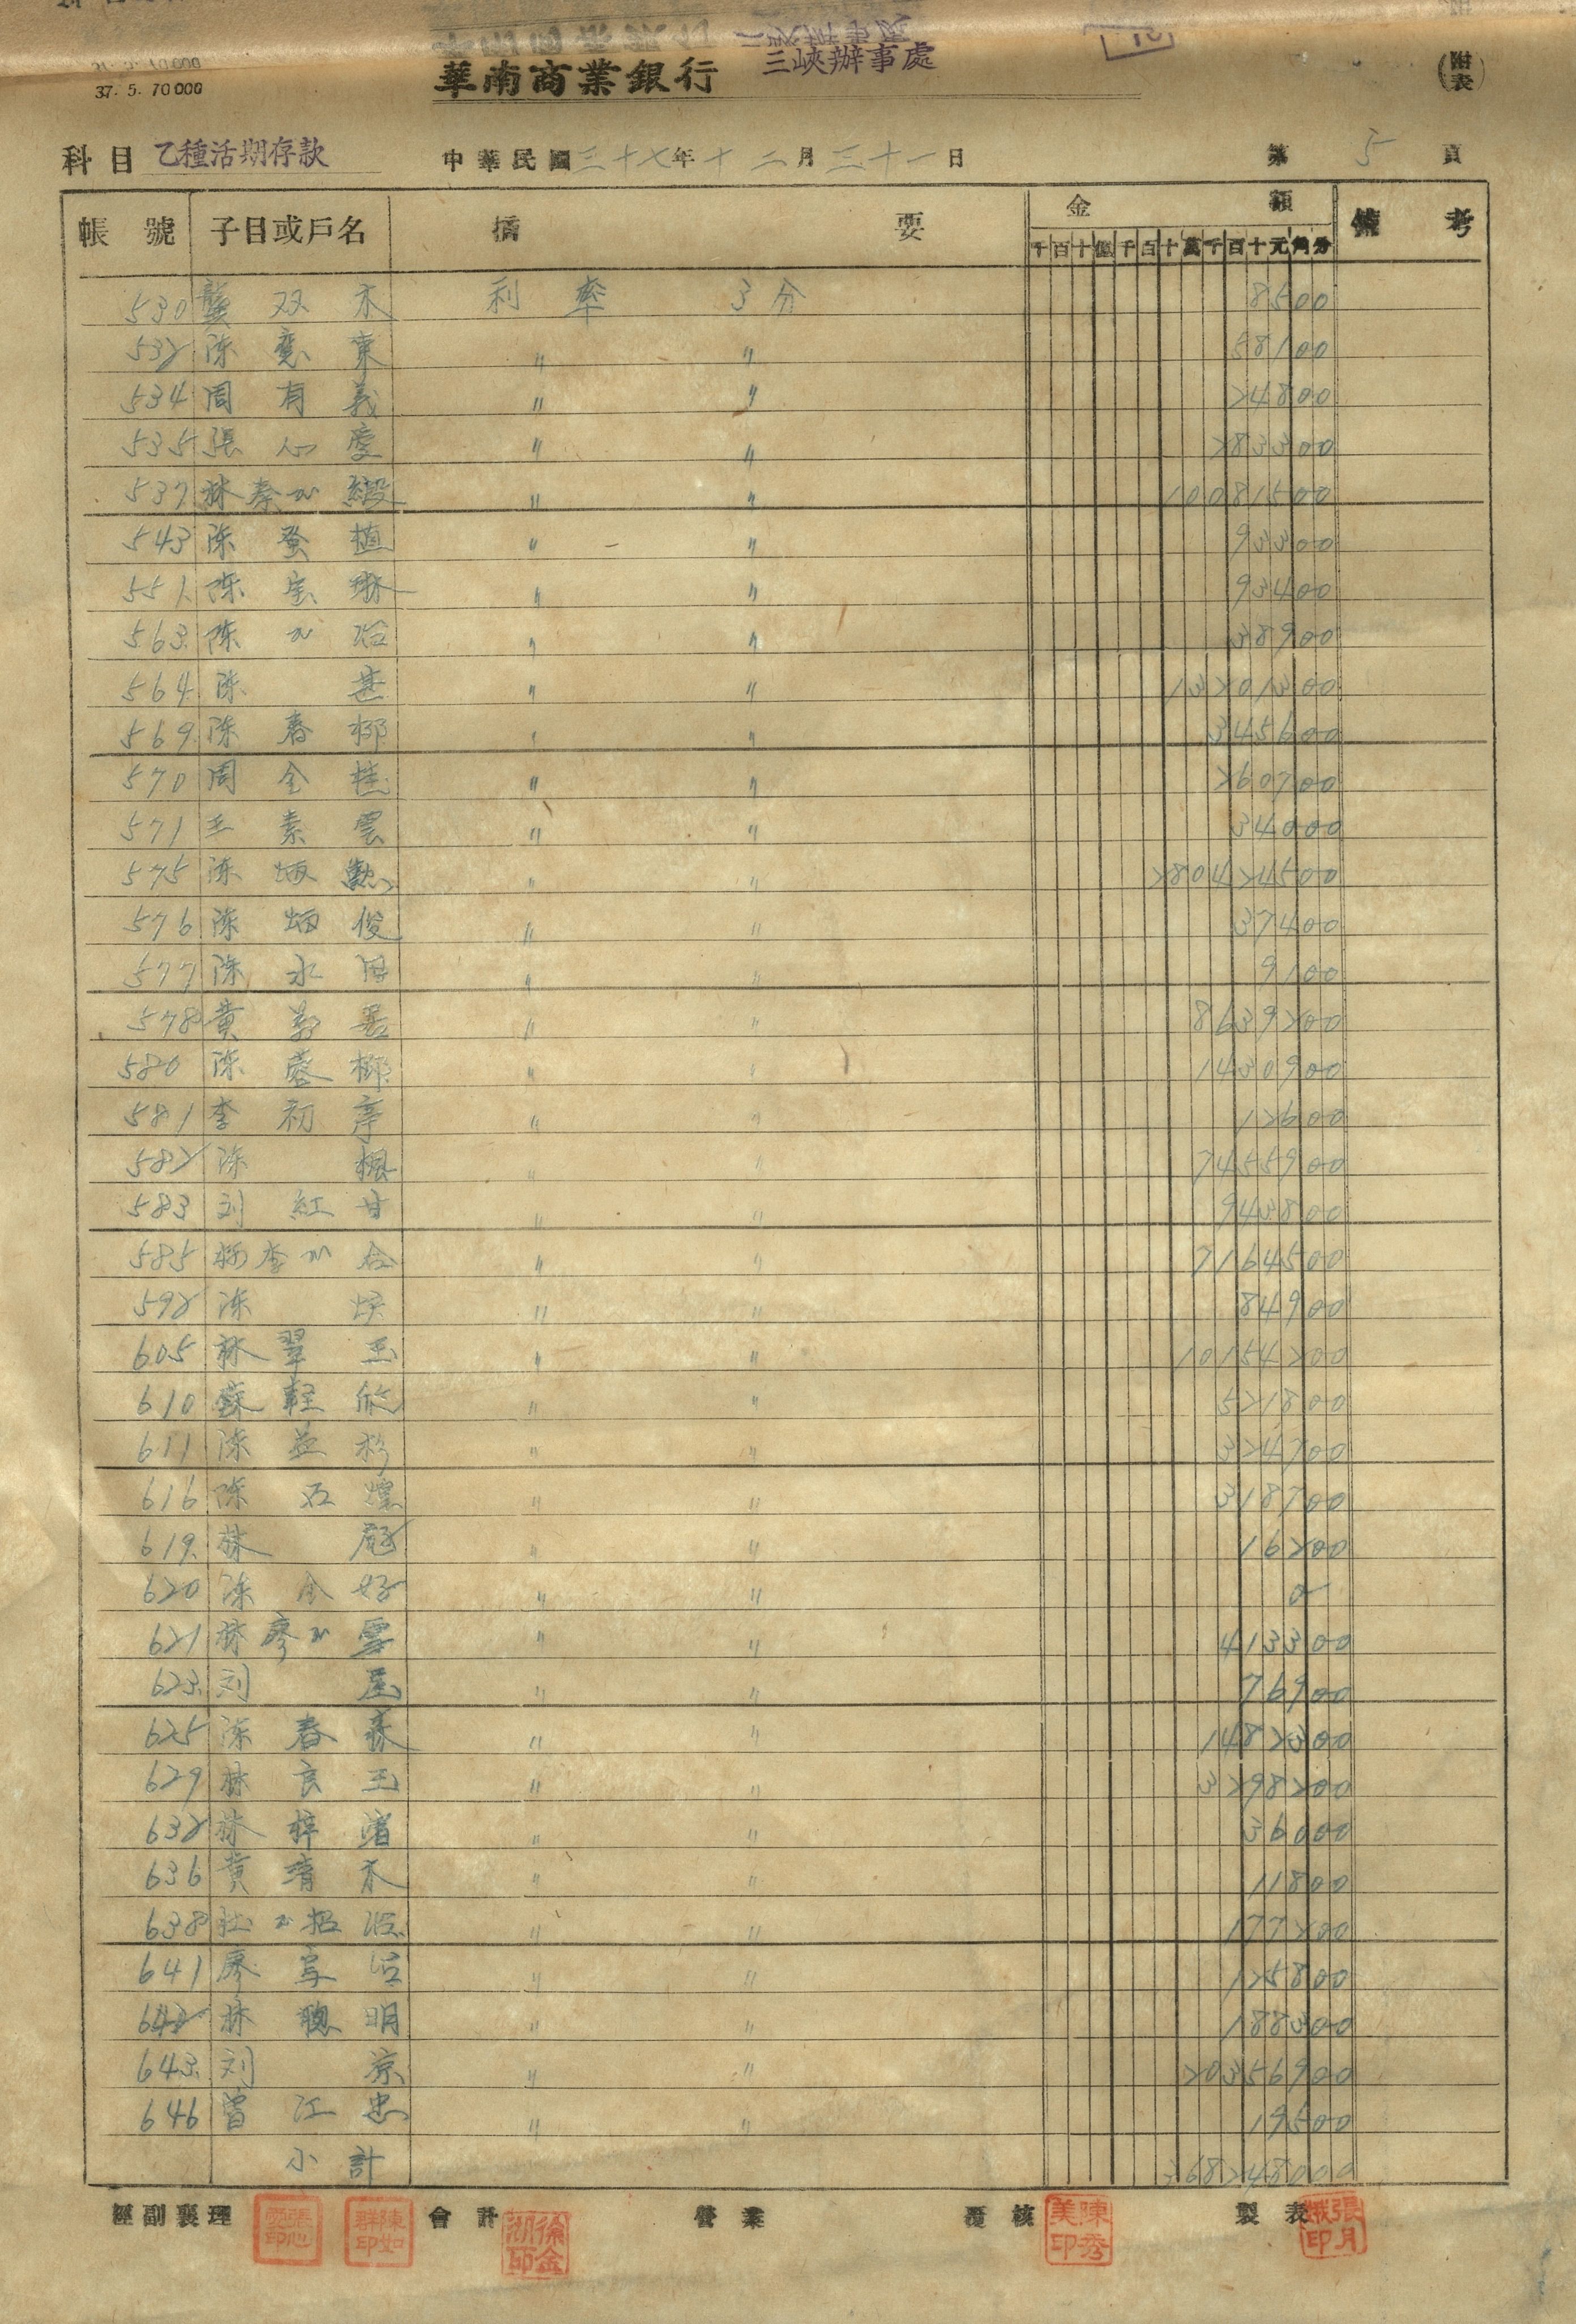 37. 5. 70000
華南商業銀行 三峽辦事處 (附表)
科目 乙種活期存款 中華民國三十七年十二月三十一日 第5頁
帳號 子目或戶名 摘要 金額 備考
千百十億千百十萬千百十元角分
530 龔双木 利率 3分 8500
532 陳 東 〃 〃 58100
534 周有義 〃 〃 24800
535 張心愛 〃 〃 283300
537 林秦氏緞 〃 〃 10081500
543 陳蚤植 〃 〃 93300
551 陳宝琳 〃 〃 93400
563 陳氏治 〃 〃 38900
564 陳甚 〃 〃 13201300
569 陳春梆 〃 〃 345600
570 周金桂 〃 〃 260700
571 王素雲 〃 〃 34000
575 陳炳勲 〃 〃 280424500
576 陳炳俊 〃 〃 37400
577 陳永 〃 〃 9100
578 黄 〃 〃 8639200
580 陳 〃 〃 1430900
581 李初 〃 〃 12600
582 陳楓 〃 〃 7455900
583 刘紅甘 〃 〃 943800
585 李氏 〃 〃 7164500
592 陳 〃 〃 84900
605 林翠玉 〃 〃 10154200
610 蘇軽 〃 〃 521800
611 陳 〃 〃 324700
616 陳石煌 〃 〃 318700
619 林 〃 〃 16200
620 陳金好 〃 〃 0
621 林廖氏雪 〃 〃 413300
623 刘 〃 〃 76900
625 陳春霖 〃 〃 1482300
629 林良玉 〃 〃 3298200
632 林梓 〃 〃 36000
636 黄清木 〃 〃 11800
638 杜氏招治 〃 〃 177200
641 廖 〃 〃 125800
642 林聰明 〃 〃 188300
643 刘涼 〃 〃 20356900
646 曾江忠 〃 〃 19500
小計 368248000
經副襄理 陳如群印 會計 徐金湖印 營業 覆核 陳秀美印 製表 張月娥印